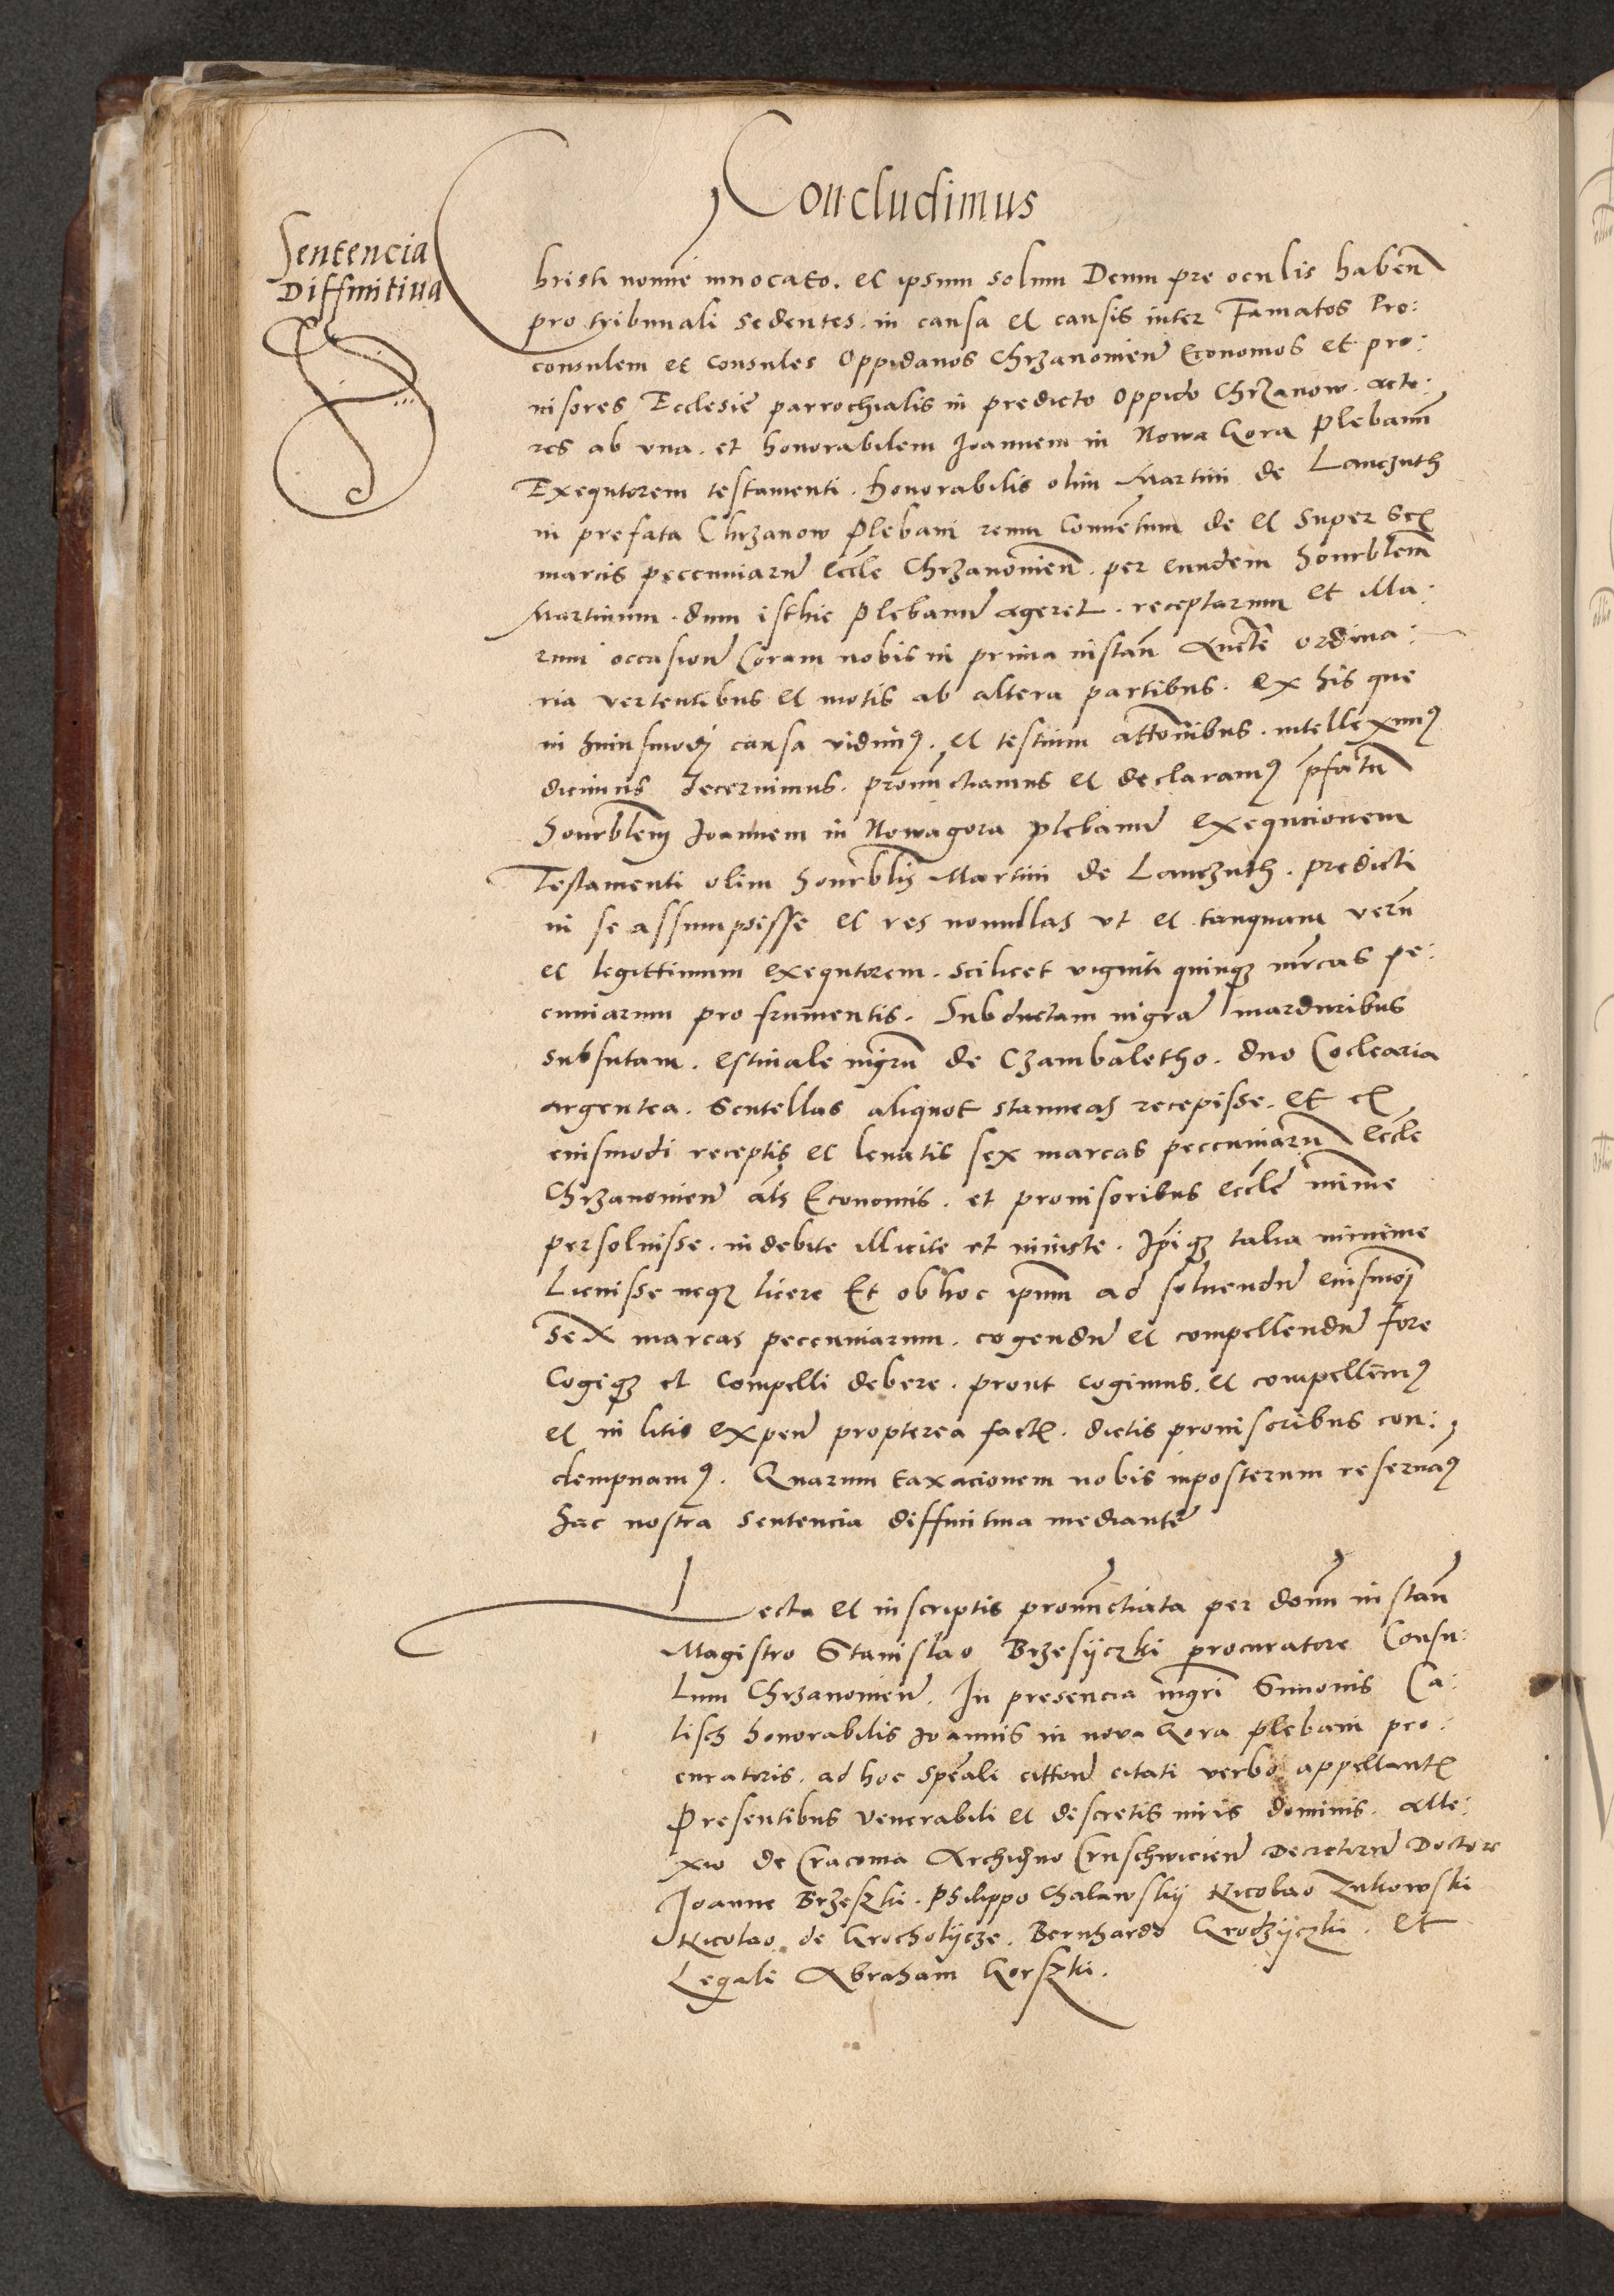 Concludimus
Sentencia
Diffinitiva
Christi nomine invocato. et ipsum solum Deum pre oculis haben
pro tribunali sedentes. in causa et causis inter Famatos Pro:
consulem et Consules Oppidanos Chrzanovien Economos et pro:
visores Ecclesie parrochialis in predicto Oppido Chrzanow. acto:
res ab una. et honorabilem Joannem in Nowa Gora Plebanum
Exequtorem testamenti. honorabilis olim Martini de Lanczuth
in prefata Chrzanow Plebani reum Conventum de et super sex
marcis peccuniarum eccle Chrzanovien. per eundem honrblem
Martinum. dum isthic Plebanum ageret. receptarum et illa:
rum occasione Coram nobis in prima instan Aucte ordina:
ria vertentibus et motis ab altera partibus. ex his que
in huiusmodi causa vidimus. et testium attonibus. intelleximus
dicimus decernimus. pronunctiamus et declaramus pfatum
honrblem Joannem in Nowagora plebanum exequcionem
Testamenti olim honrblis Martini de Lanczuth. predicti
in se assumpsisse et res nonnullas ut et tanquam verum
et legittimum exequtorem. scilicet viginti quinque mrcas pe:
cuniarum pro frumentis. Subductam nigram marduribus
subsutam. estivale nigrum de Czambaletho. duo Coclearia
argentea. scutellas aliquot stanneas recepisse. et ex
eiusmodi receptis et levatis sex marcas peccuniarum eccle
Chrzanovien als Economis. et provisoribus eccle minime
persolvisse. indebite illicite et iniuste. Ipique talia minime
Licuisse neque licere Et ob hoc ipsum ad solvendum eiusmoi
sex marcas peccuniarum. cogendum et compellendum fore
Cogique et Compelli debere. prout cogimus. et compellimus
et in litis expen propterea factis. dictis provisoribus con:
dempnamus. Quarum taxacionem nobis inposterum reservamus
hac nostra sentencia diffinitiva mediante
Lecta et in scriptis pronunctiata per donum instan
Magistro Stanislao Brzesyczki procuratore Consu:
lum Chrzanovien. In presencia mgri Simonis Ca:
lisch honorabilis Joannis in nova Gora plebani pro:
curatoris. ad hoc speali cittone citati verbo appellantis
Presentibus venerabili et discretis viris dominis. Alle:
xio de Cracovia Archidno Cruschwicien Decretorum Doctore
Joanne Brzeszki. Philippo Chalawskij Nicolao Zukowski
Nicolao de Grocholycze. Bernhardo Grodzyczki. et
Legali Abraham Gorszki.